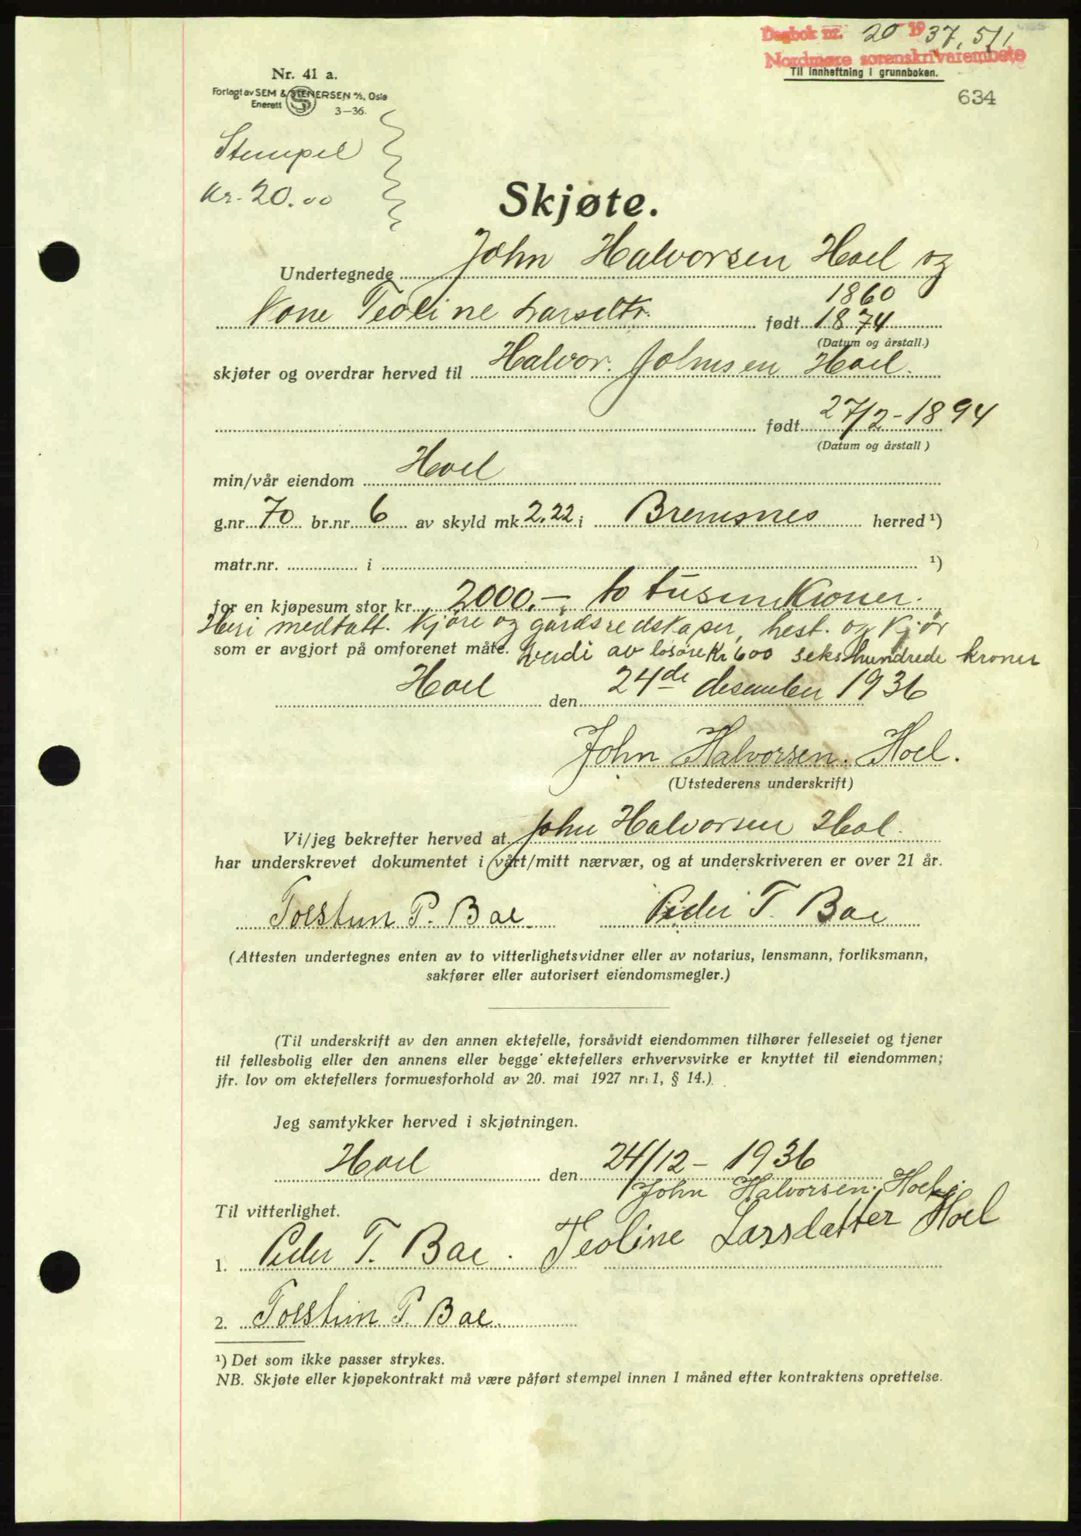 Dagbok nr. 20 1937, 5/1
Nordmøre sorenskriverembete
Til innheftning i grunnboken.
634
Nr. 41 a.
Forlagt av SEM & STENERSEN A/S, Oslo
Enerett
3-36.
Stempel
Kr. 20.00
Skjøte.
Undertegnede John Halvorsen Hoel og
Kone Teoline Larsdtr. født 1860 1874
(Datum og årstall.)
skjøter og overdrar herved til Halvor. Johnsen Hoel.
født 27/2-1894
(Datum og årstall)
min/vår eiendom Hoel
g.nr. 70 br.nr 6 av skyld mk 2.22 i Bremsnes herred ¹)
matr.nr. i ¹)
for en kjøpesum stor kr. 2000.-, to tusen Kroner.
Heri medtatt. Kjøre og gårdsredskaper, hest. og Kjør
som er avgjort på omforenet måte. Verdi av løsøre Kr 600 sekshundrede kroner
Hoel den 24de desember 1936
John Halvorsen. Hoel.
(Utstederens underskrift)
Vi/jeg bekrefter herved at John Halvorsen Hoel.
har underskrevet dokumentet i vårt/mitt nærvær, og at underskriveren er over 21 år.
Torstein P. Bae Peder T. Bae
(Attesten undertegnes enten av to vitterlighetsvidner eller av notarius, lensmann, forliksmann,
sakfører eller autorisert eiendomsmegler.)
(Til underskrift av den annen ektefelle, forsåvidt eiendommen tilhører felleseiet og tjener
til fellesbolig eller den annens eller begge ektefellers erhvervsvirke er knyttet til eiendommen;
jfr. lov om ektefellers formuesforhold av 20. mai 1927 nr. 1, § 14.)
Jeg samtykker herved i skjøtningen.
Hoel den 24/12-1936
John Halvorsen. Hoel.
Til vitterlighet.
1. Peder T. Bae. Teoline Larsdatter Hoel
2. Torstein P. Bae.
¹) Det som ikke passer strykes.
NB. Skjøte eller kjøpekontrakt må være påført stempel innen 1 måned efter kontraktens oprettelse.